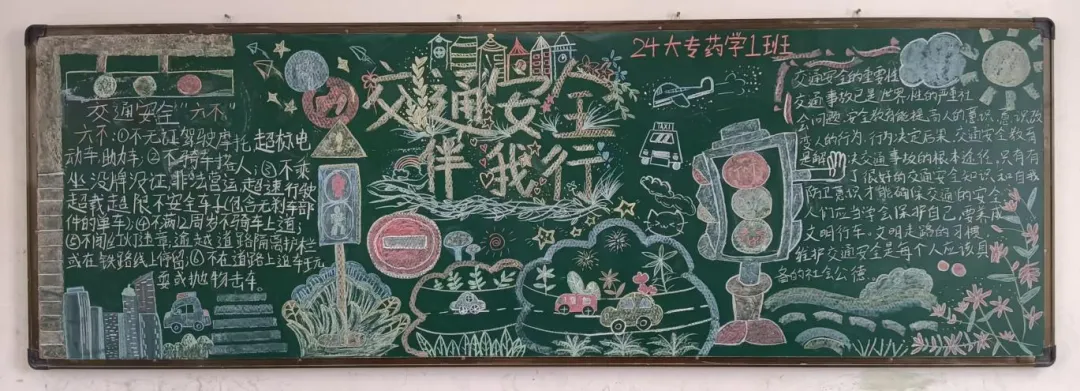 交通安全"六不"
六不:①不无证驾驶摩托,超标电
动车,助力车;②不骑车搭人;③不乘
坐没牌没证,非法营运,超速行驶
超载超限不安全车
件的单车);④不满12周岁不骑车上道;
⑤不闯红灯违章,道越道路隔离护栏
或在铁路线上停留;⑥不在道路上追车
或抛物击车。
交通安全
伴我行
24大专药学1班
TAXI
交通安全的重要性
交通事故已是世界性的严重社
会问题,安全教育能提高人的意识,意识改
变人的行为,行为决定后果,交通安全教育
是解决交通事故的根本途径,只有有
了很好的交通安全知识和自我
防卫意识才能确保交通的安全
人们应当学会保护自己,要养成
文明行车,文明走路的习惯
维护交通安全是每个人应该具
备的社会公德